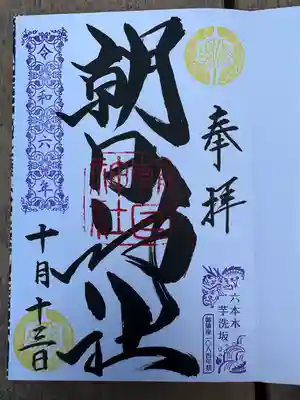 奉拝
六本木
芋洗坂
朝日神社
朝日
神社
令和六年
十月十三日